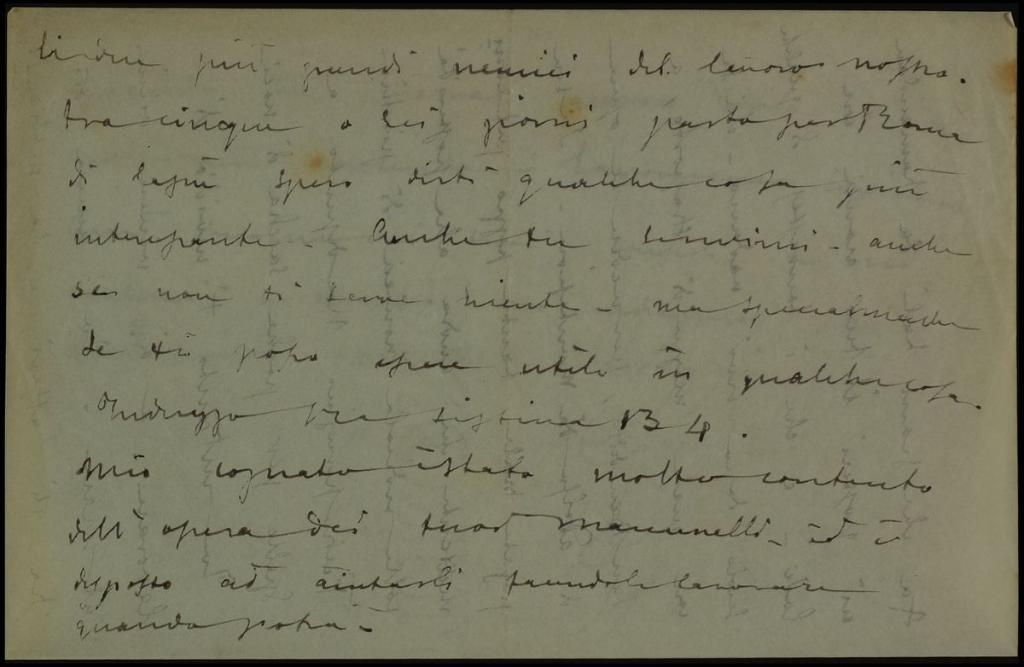 più grandi nemici del lavoro nostro.
tra cinque o sei giorni parto per Roma
di laggiù spero dirti qualche cosa più
interessante - Anche tu scrivimi - anche
se non ti serve niente - ma specialmente
se ti posso essere utile in qualche cosa.
Indirizzo Via Sistina 134.
Mio cognato è stato molto contento
dell'opera dei tuoi - ed è
disposto ad aiutarli facendole lavorare
quando potrà -